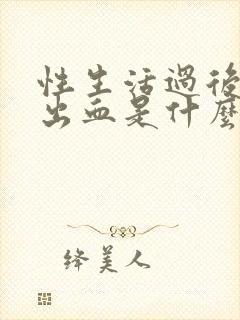 性生活過後
出血是什麼
绛美人